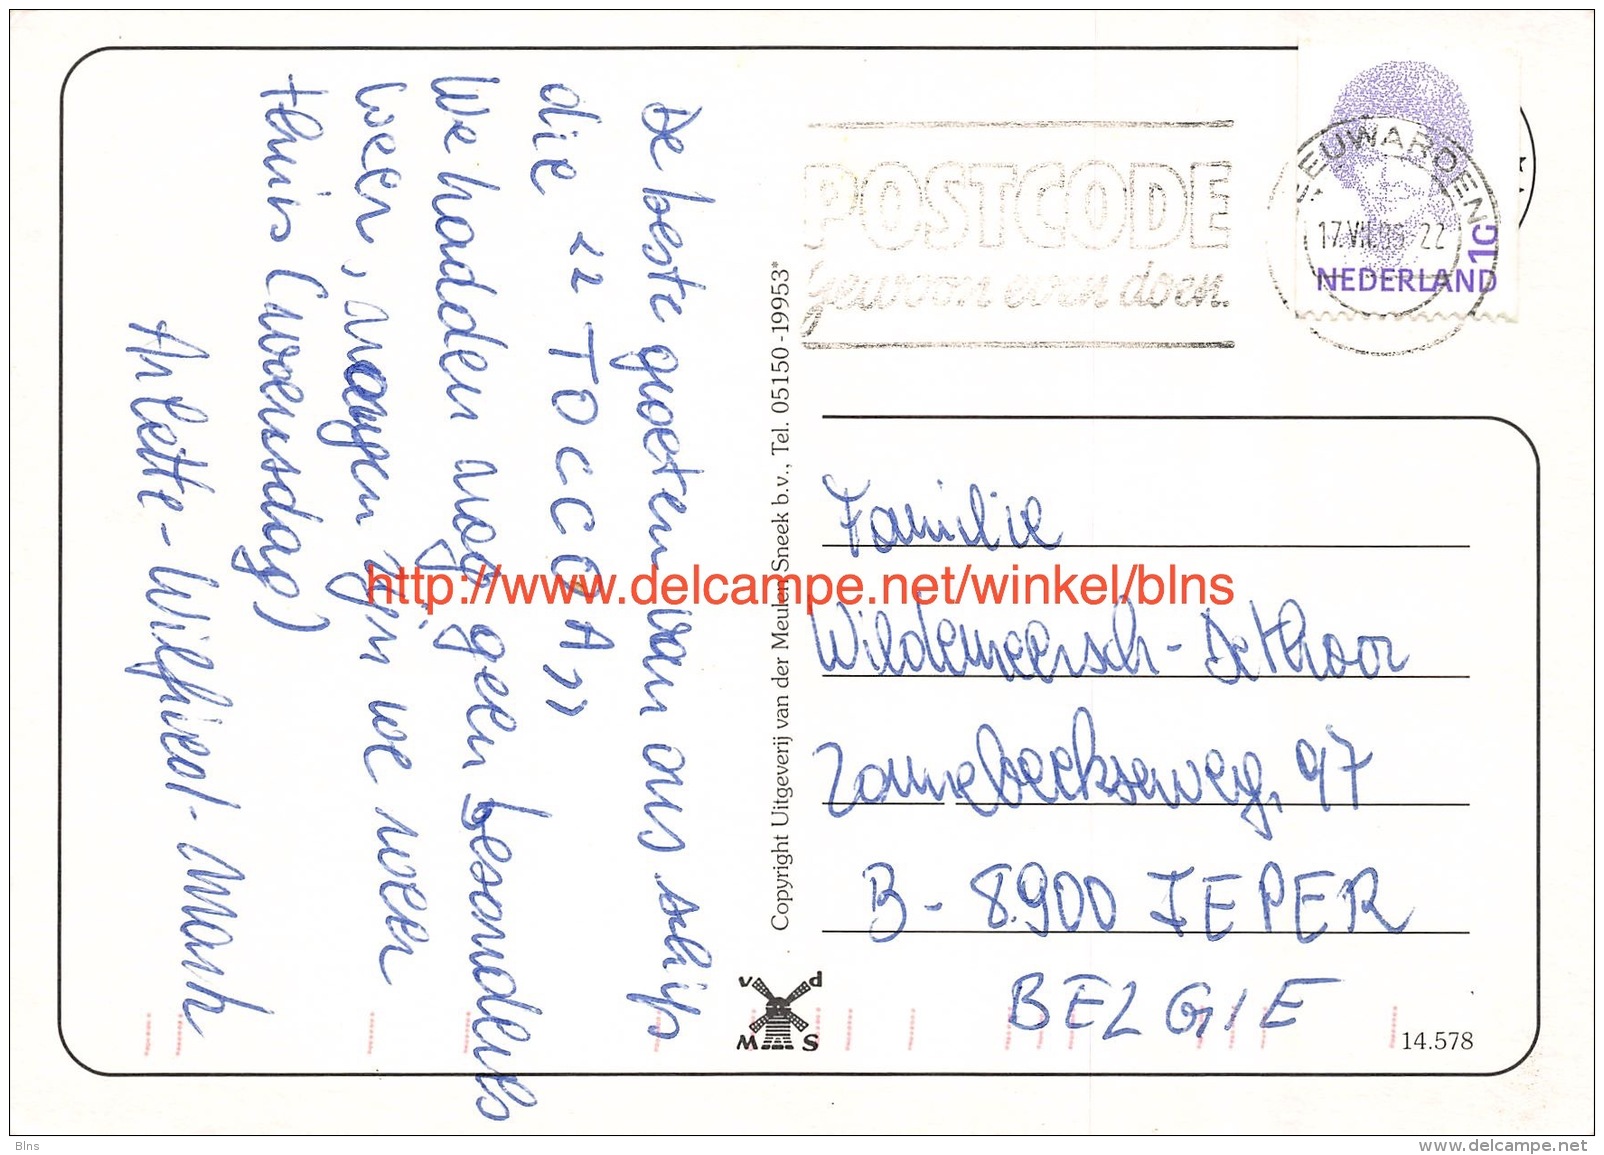 De beste groeten van ons schip
die << TOCCOA >>
We hadden nog geen besonders
weer, morgen zijn we weer
thuis (woensdag)
Arlette - Wilfried - Mark
Copyright Uitgeverij van der Meulen Sneek b.v., Tel. 05150-19953*
POSTCODE
gewoon even doen.
LEEUWARDEN
17.VII.95-22
1G
NEDERLAND
Familie
Wildemeersch - Dethoor
Zonnebeekseweg, 97
B - 8900 IEPER
BELGIE
v d
M S
14.578
http://www.delcampe.net/winkel/blns
Blns
www.delcampe.net